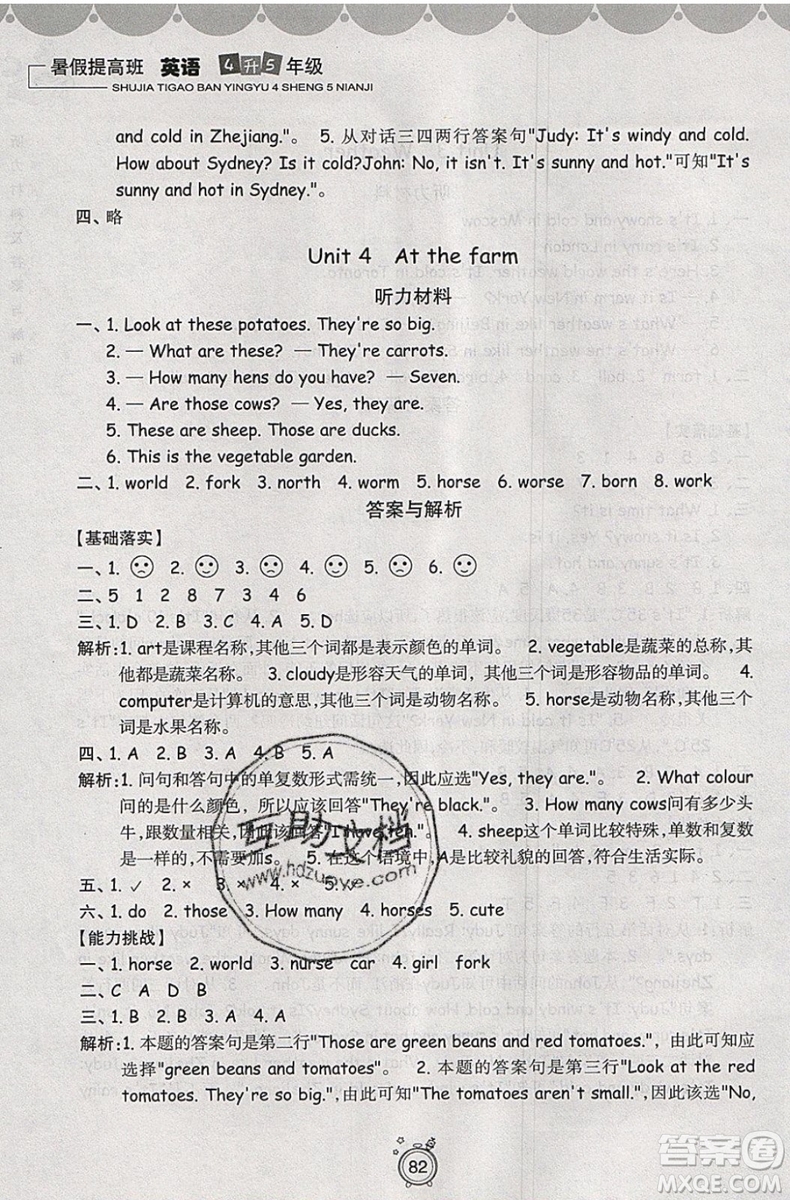 暑假提高班 英语 4升5年级
SHUJIA TIGAO BAN YINGYU 4 SHENG 5 NIANJI
and cold in Zhejiang."。 5. 从对话三四两行答案句"Judy: It's windy and cold.
How about Sydney? Is it cold?John: No, it isn't. It's sunny and hot."可知"It's
sunny and hot in Sydney."。
四、略
Unit 4 At the farm
听力材料
一、1. Look at these potatoes. They're so big.
2. — What are these? — They're carrots.
3. — How many hens do you have? — Seven.
4. — Are those cows? — Yes, they are.
5. These are sheep. Those are ducks.
6. This is the vegetable garden.
二、1. world 2. fork 3. north 4. worm 5. horse 6. worse 7. born 8. work
答案与解析
【基础落实】
一、1. ☹ 2. ☺ 3. ☹ 4. ☺ 5. ☹ 6. ☺
二、5 1 2 8 7 3 4 6
三、1. D 2. B 3. C 4. A 5. D
解析:1. art是课程名称,其他三个词都是表示颜色的单词。 2. vegetable是蔬菜的总称,其
他都是蔬菜名称。 3. cloudy是形容天气的单词，其他三个词是形容物品的单词。 4.
computer是计算机的意思,其他三个词是动物名称。 5. horse是动物名称,其他三个
词是水果名称。
四、1. A 2. B 3. A 4. B 5. A
解析:1. 问句和答句中的单复数形式需统一,因此应选"Yes, they are."。 2. What colour
问的是什么颜色，所以应该回答"They're black."。 3. How many cows问有多少头
牛,跟数量相关,因此应该回答"I have ten."。 4. sheep这个单词比较特殊,单数复数
是一样的,不需要加s。 5. 在这个语境中,A是比较礼貌的回答,符合生活实际。
五、1. ✓ 2. × 3. × 4. × 5.
六、1. do 2. those 3. How many 4. horses 5. cute
【能力挑战】
一、1. horse 2. world 3. nurse car 4. girl fork
二、C A D B
三、1. B 2. B 3. A 4. B 5. A
解析:1. 本题的答案句是第二行"Those are green beans and red tomatoes."，由此可知应
选择"green beans and tomatoes"。 2. 本题的答案句是第三行"Look at the red
tomatoes. They're so big."，由此可知"The tomatoes aren't small."，因此该选"No,
82
互助文档
www.hdzuoye.com
答案圈
MXQE.COM